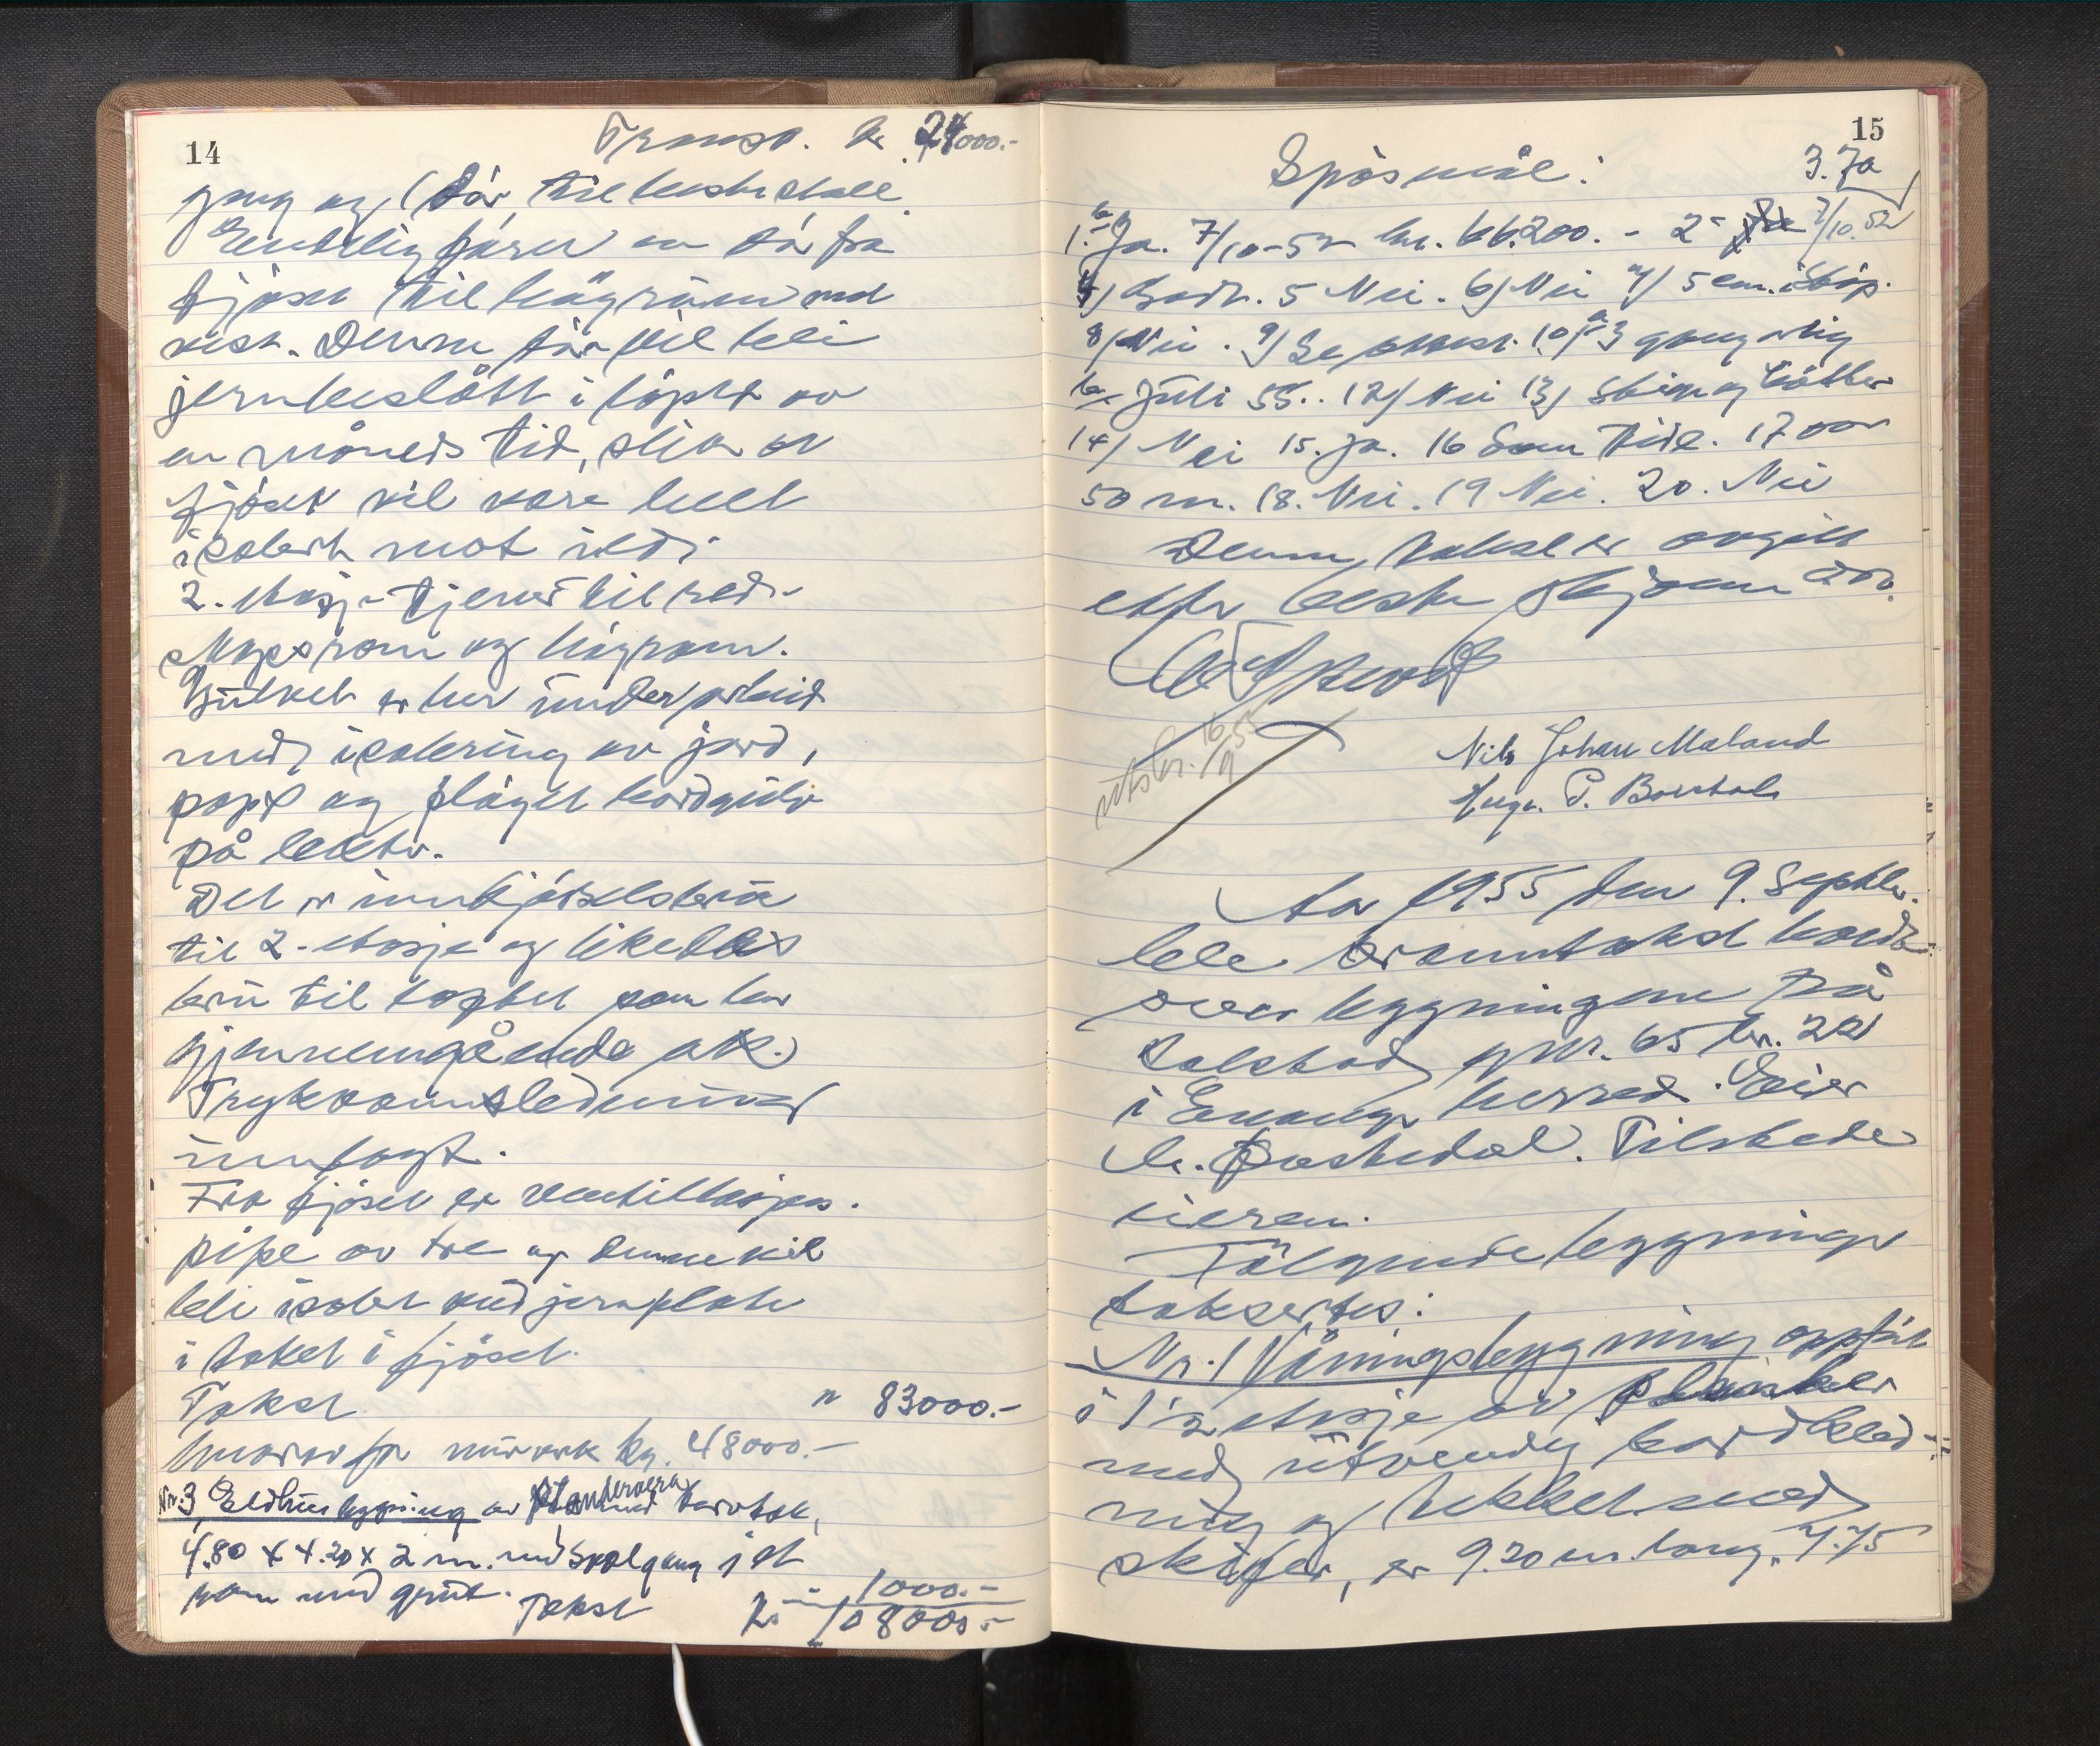 14
Transp. kr. 24000.-
gang og dør til hesteståll.
Endelig fører en dør fra
fjøset til høgrummed
vest. Denne dør vil bli
jernbeslått i løpet av
en måneds tid, slik at
fjøset vil være helt
isolert mot ild.
2. etasje tjener til red-
skapsrom og høyrom.
Gulvet er her under arbeid
med isolering av jord,
papp og pløyet bordgulv
på lekter.
Det er innkjørselsbru
til 2. etasje og likeledes
bru til toppet som har
gjennemgående ark.
Trykkvannsledninger
innlagt.
Fra fjøset er ventillasjons-
pipe av tre og denne vil
bli isolert ved jernplate
i taket i fjøset.
Takst " 83000.-
hvorav for murverk kr. 48000.-
Nr. 3, Eldhusbygning av med torvtak,
4.80 x 4.20 x 2 m. med svalgang, i et
rom med grue. Takst " 1000.-
kr. 108000.-
15
Spørsmål:
3. Ja
1. b. Ja. 7/10-52 kr. 66.200.- 2 7/10.52
4) Godt. 5 Nei. 6) Nei 7/ 5 em.
8/ Nei. 9/ 10/ a 3 gang årlig
b/ Juli 55. 12/ Nei 13)
14/ Nei 15. Ja. 16 Som før. 17 over
50 m. 18. Nei. 19 Nei. 20. Nei
Denne takst er avgitt
etter beste skjønn
utskr. 16/9 55
Nils Johan Maland
P.
Aar 1955 den 9. Septbr.
ble branntakst holdt
over bygningene på
gnr. 65 br. 22
i herred. Eier
Tilstede
eieren.
Følgende bygninger
taksertes:
Nr. 1 Våningsbygning oppført
i 1½ etasje av planker
med utvendig bordkled-
ning og tekket med
skifer, er 9.20 m. lang, 7.75